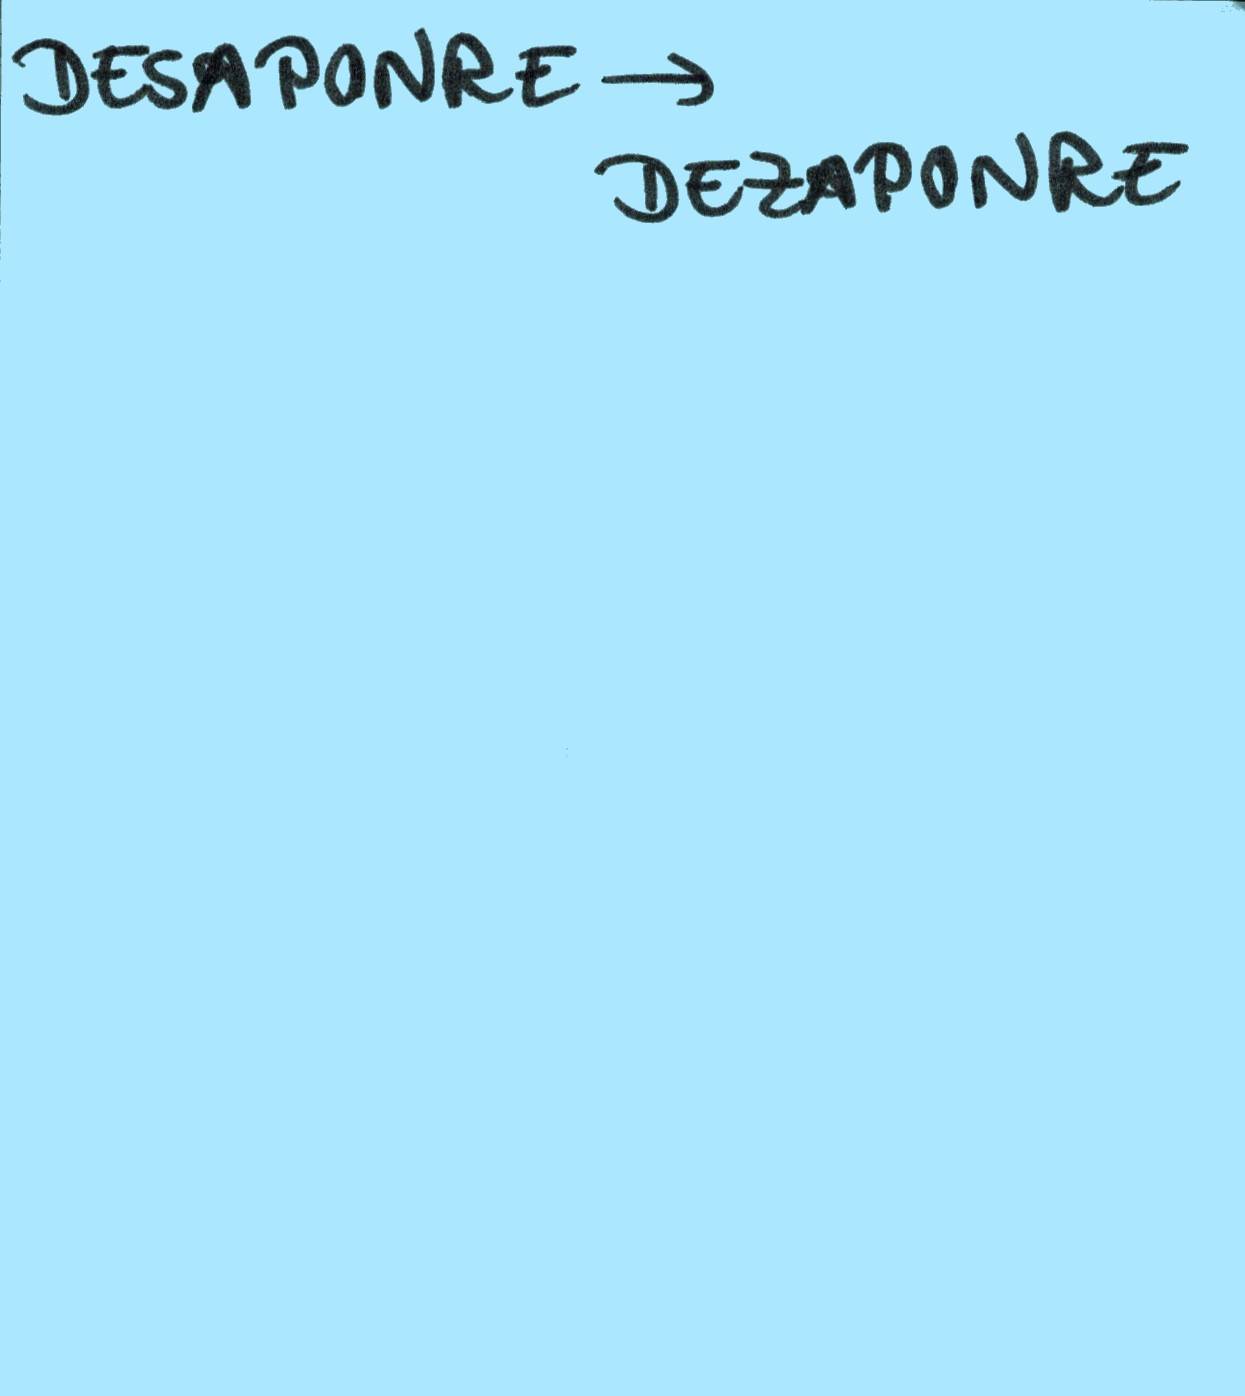 DESAPONRE →
DEZAPONRE